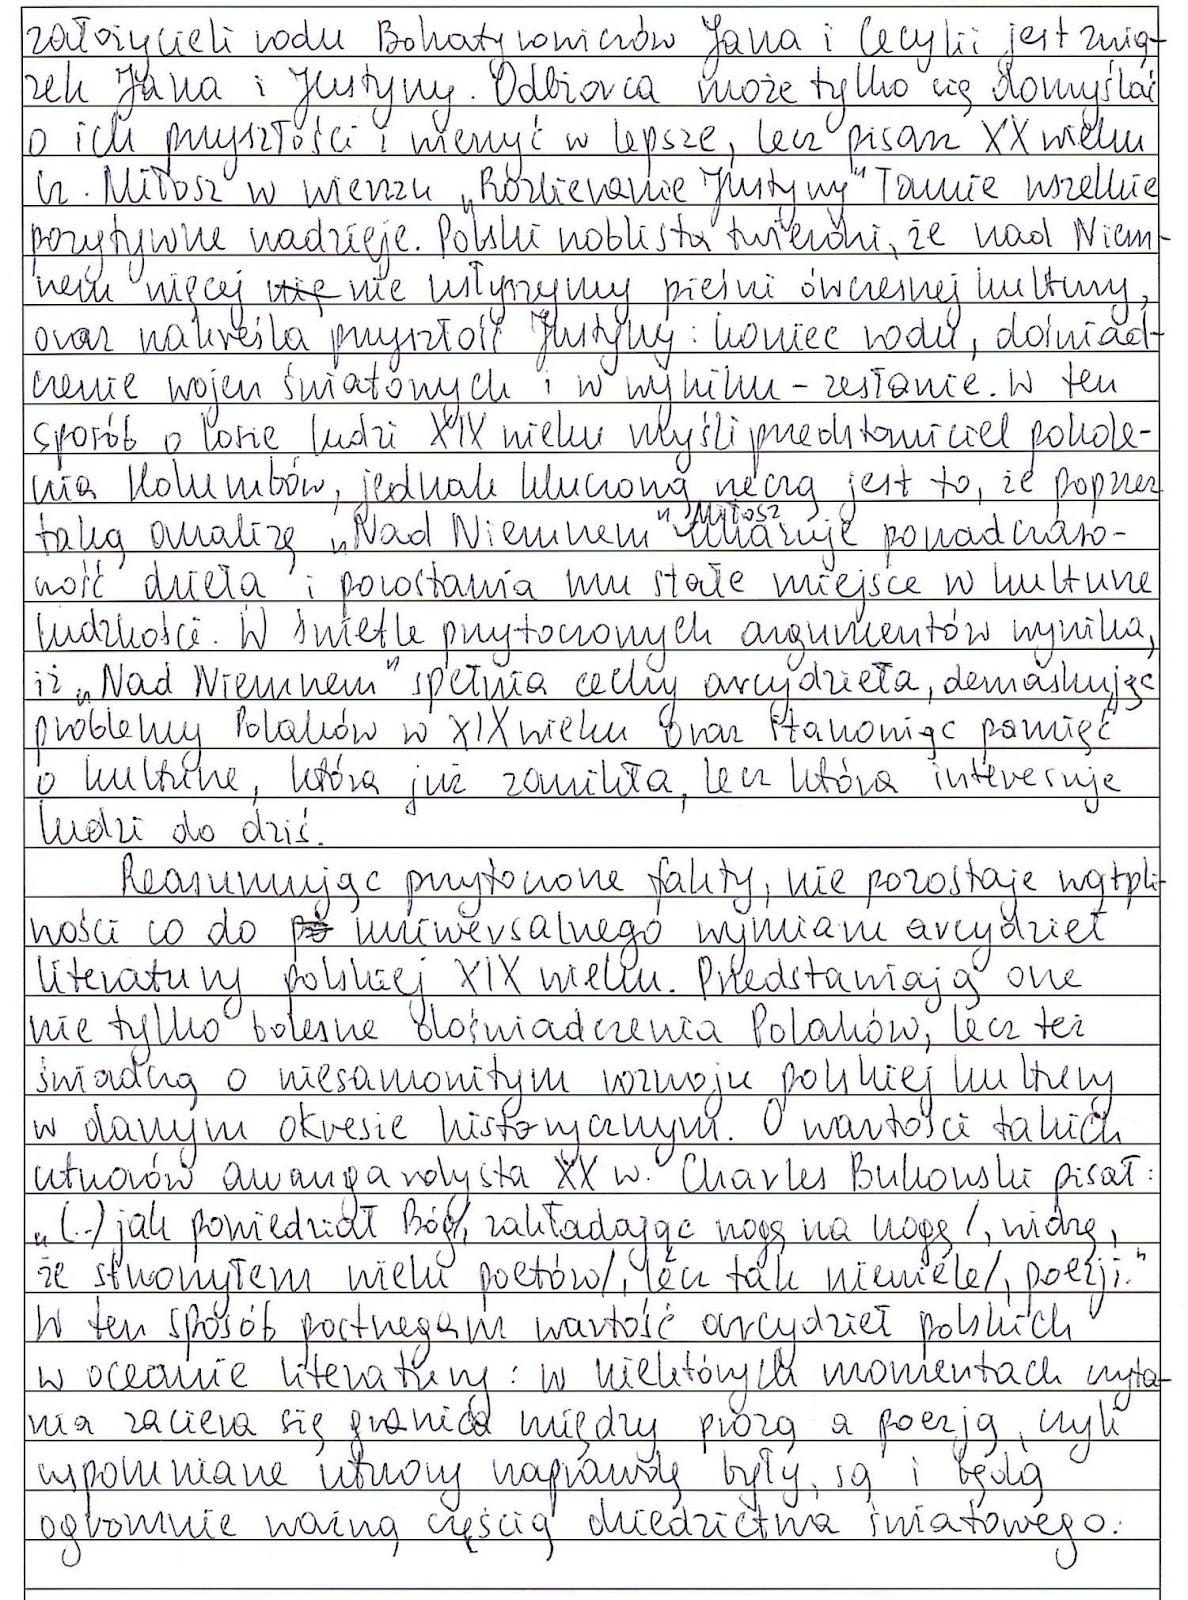 założycieli rodu Bohatyrowiczów Jana i Cecylii jest zwią-
zek Jana i Justyny. Odbiorca może tylko się domyślać
o ich przyszłości i wierzyć w lepsze, lecz pisarz XX wieku
Cz. Miłosz w wierszu „Rozbieranie Justyny" łamie wszelkie
pozytywne nadzieje. Polski noblista twierdzi, że nad Niem-
nem więcej nie usłyszymy pieśni ówczesnej kultury,
oraz nakreśla przyszłość Justyny: koniec rodu, doświad-
czenie wojen światowych i w wyniku – zesłanie. W ten
sposób o losie ludzi XIX wieku myśli przedstawiciel pokole-
nia Kolumbów, jednak kluczową rzeczą jest to, że poprzez
taką analizę „Nad Niemnem" Miłosz ukazuje ponadczaso-
wość dzieła i pozostawia mu stałe miejsce w kulturze
ludzkości. W świetle przytoczonych argumentów wynika,
iż „Nad Niemnem" spełnia cechy arcydzieła, demaskując
problemy Polaków w XIX wieku oraz stanowiąc pamięć
o kulturze, która już zanikła, lecz która interesuje
ludzi do dziś.
Reasumując przytoczone fakty, nie pozostaje wątpli-
wości co do uniwersalnego wymiaru arcydzieł
literatury polskiej XIX wieku. Przedstawiają one
nie tylko bolesne doświadczenia Polaków, lecz też
świadczą o niesamowitym rozwoju polskiej kultury
w danym okresie historycznym. O wartości takich
utworów awangardysta XX w. Charles Bukowski pisał:
„(...) jak powiedział Bóg/, zakładając nogę na nogę/, widzę,
że stworzyłem wielu poetów/, lecz tak niewiele/, poezji."
W ten sposób postrzegam wartość arcydzieł polskich
w oceanie literatury: w niektórych momentach czyta-
nia zaciera się granica między prozą a poezją, czyli
wspomniane utwory naprawdę były, są i będą
ogromnie ważną częścią dziedzictwa światowego.